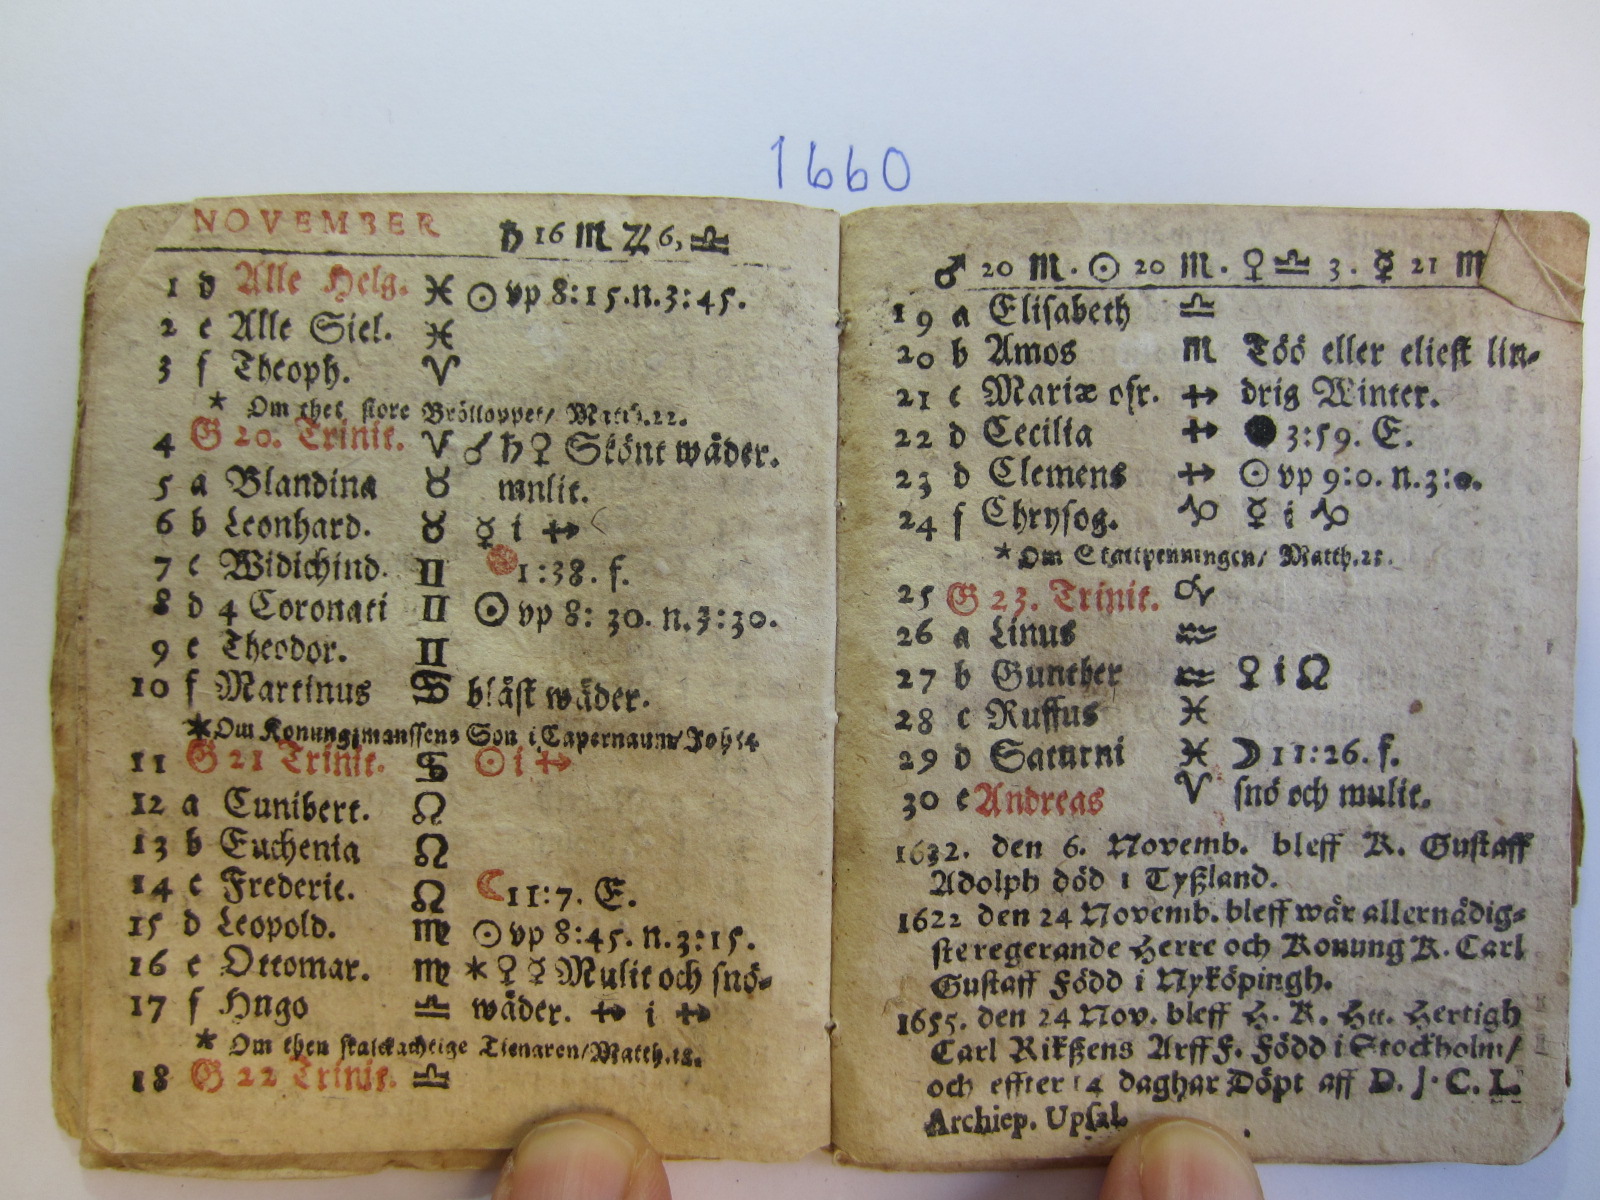 1660
NOVEMBER ♄ 16 ♏ ♃ 6, ♎
1 d Alle Helg. ♓ ☉ vp 8:15. n. 3:45.
2 e Alle Siel. ♓
3 f Theoph. ♈
* Om thet store Brölloppet/ Matth. 22.
4 G 20. Trinit. ♈ ☌ ♄ ♀ Skönt wäder.
5 a Blandina ♉ mulit.
6 b Leonhard. ♉ ☿ i ♐
7 c Widichind. ♊ 1:38. f.
8 d 4 Coronati ♊ ☉ vp 8: 30. n. 3:30.
9 e Theodor. ♊
10 f Martinus ♋ bläst wäder.
* Om Konungzmanssens Son i Capernaum/ Joh: 4
11 G 21 Trinit. ♋ ☉ i ♐
12 a Cunibert. ♌
13 b Euchenia ♌
14 c Frederic. ♌ ☾ 11:7. E.
15 d Leopold. ♍ ☉ vp 8:45. n. 3:15.
16 e Ottomar. ♍ ⚹ ♀ ☿ Mulit och snö-
17 f Hugo ♎ wäder. ♐ i ♐
* Om then skalckachtige Tienaren/ Matth. 18.
18 G 22 Trinit. ♎
♂ 20 ♏. ☉ 20 ♏. ♀ ♎ 3. ☿ 21 ♏
19 a Elisabeth ♎
20 b Amos ♏ Töö eller eliest lin-
21 c Mariæ ofr. ♐ drig Winter.
22 d Cecilia ♐ ● 3:59. E.
23 d Clemens ♐ ☉ vp 9:0. n. 3:0.
24 f Chrysog. ♑ ☿ i ♑
* Om Skattpenningen/ Matth. 22.
25 G 23. Trinit. ♑
26 a Linus ♒
27 b Gunther ♒ ♀ i ♌
28 c Ruffus ♓
29 d Saturni ♓ ☽ 11:26. f.
30 e Andreas ♈ snö och mulit.
1632. den 6. Novemb. bleff K. Gustaff
Adolph död i Tyßland.
1622 den 24 Novemb. bleff wår allernådig-
ste regerande Herre och Konung K. Carl
Gustaff Född i Nyköpingh.
1655. den 24 Nov. bleff H. K. Ht. Hertigh
Carl Rikßens Arff F. Född i Stockholm/
och effter 14 daghar Döpt aff D. J. C. L.
Archiep. Upsal.